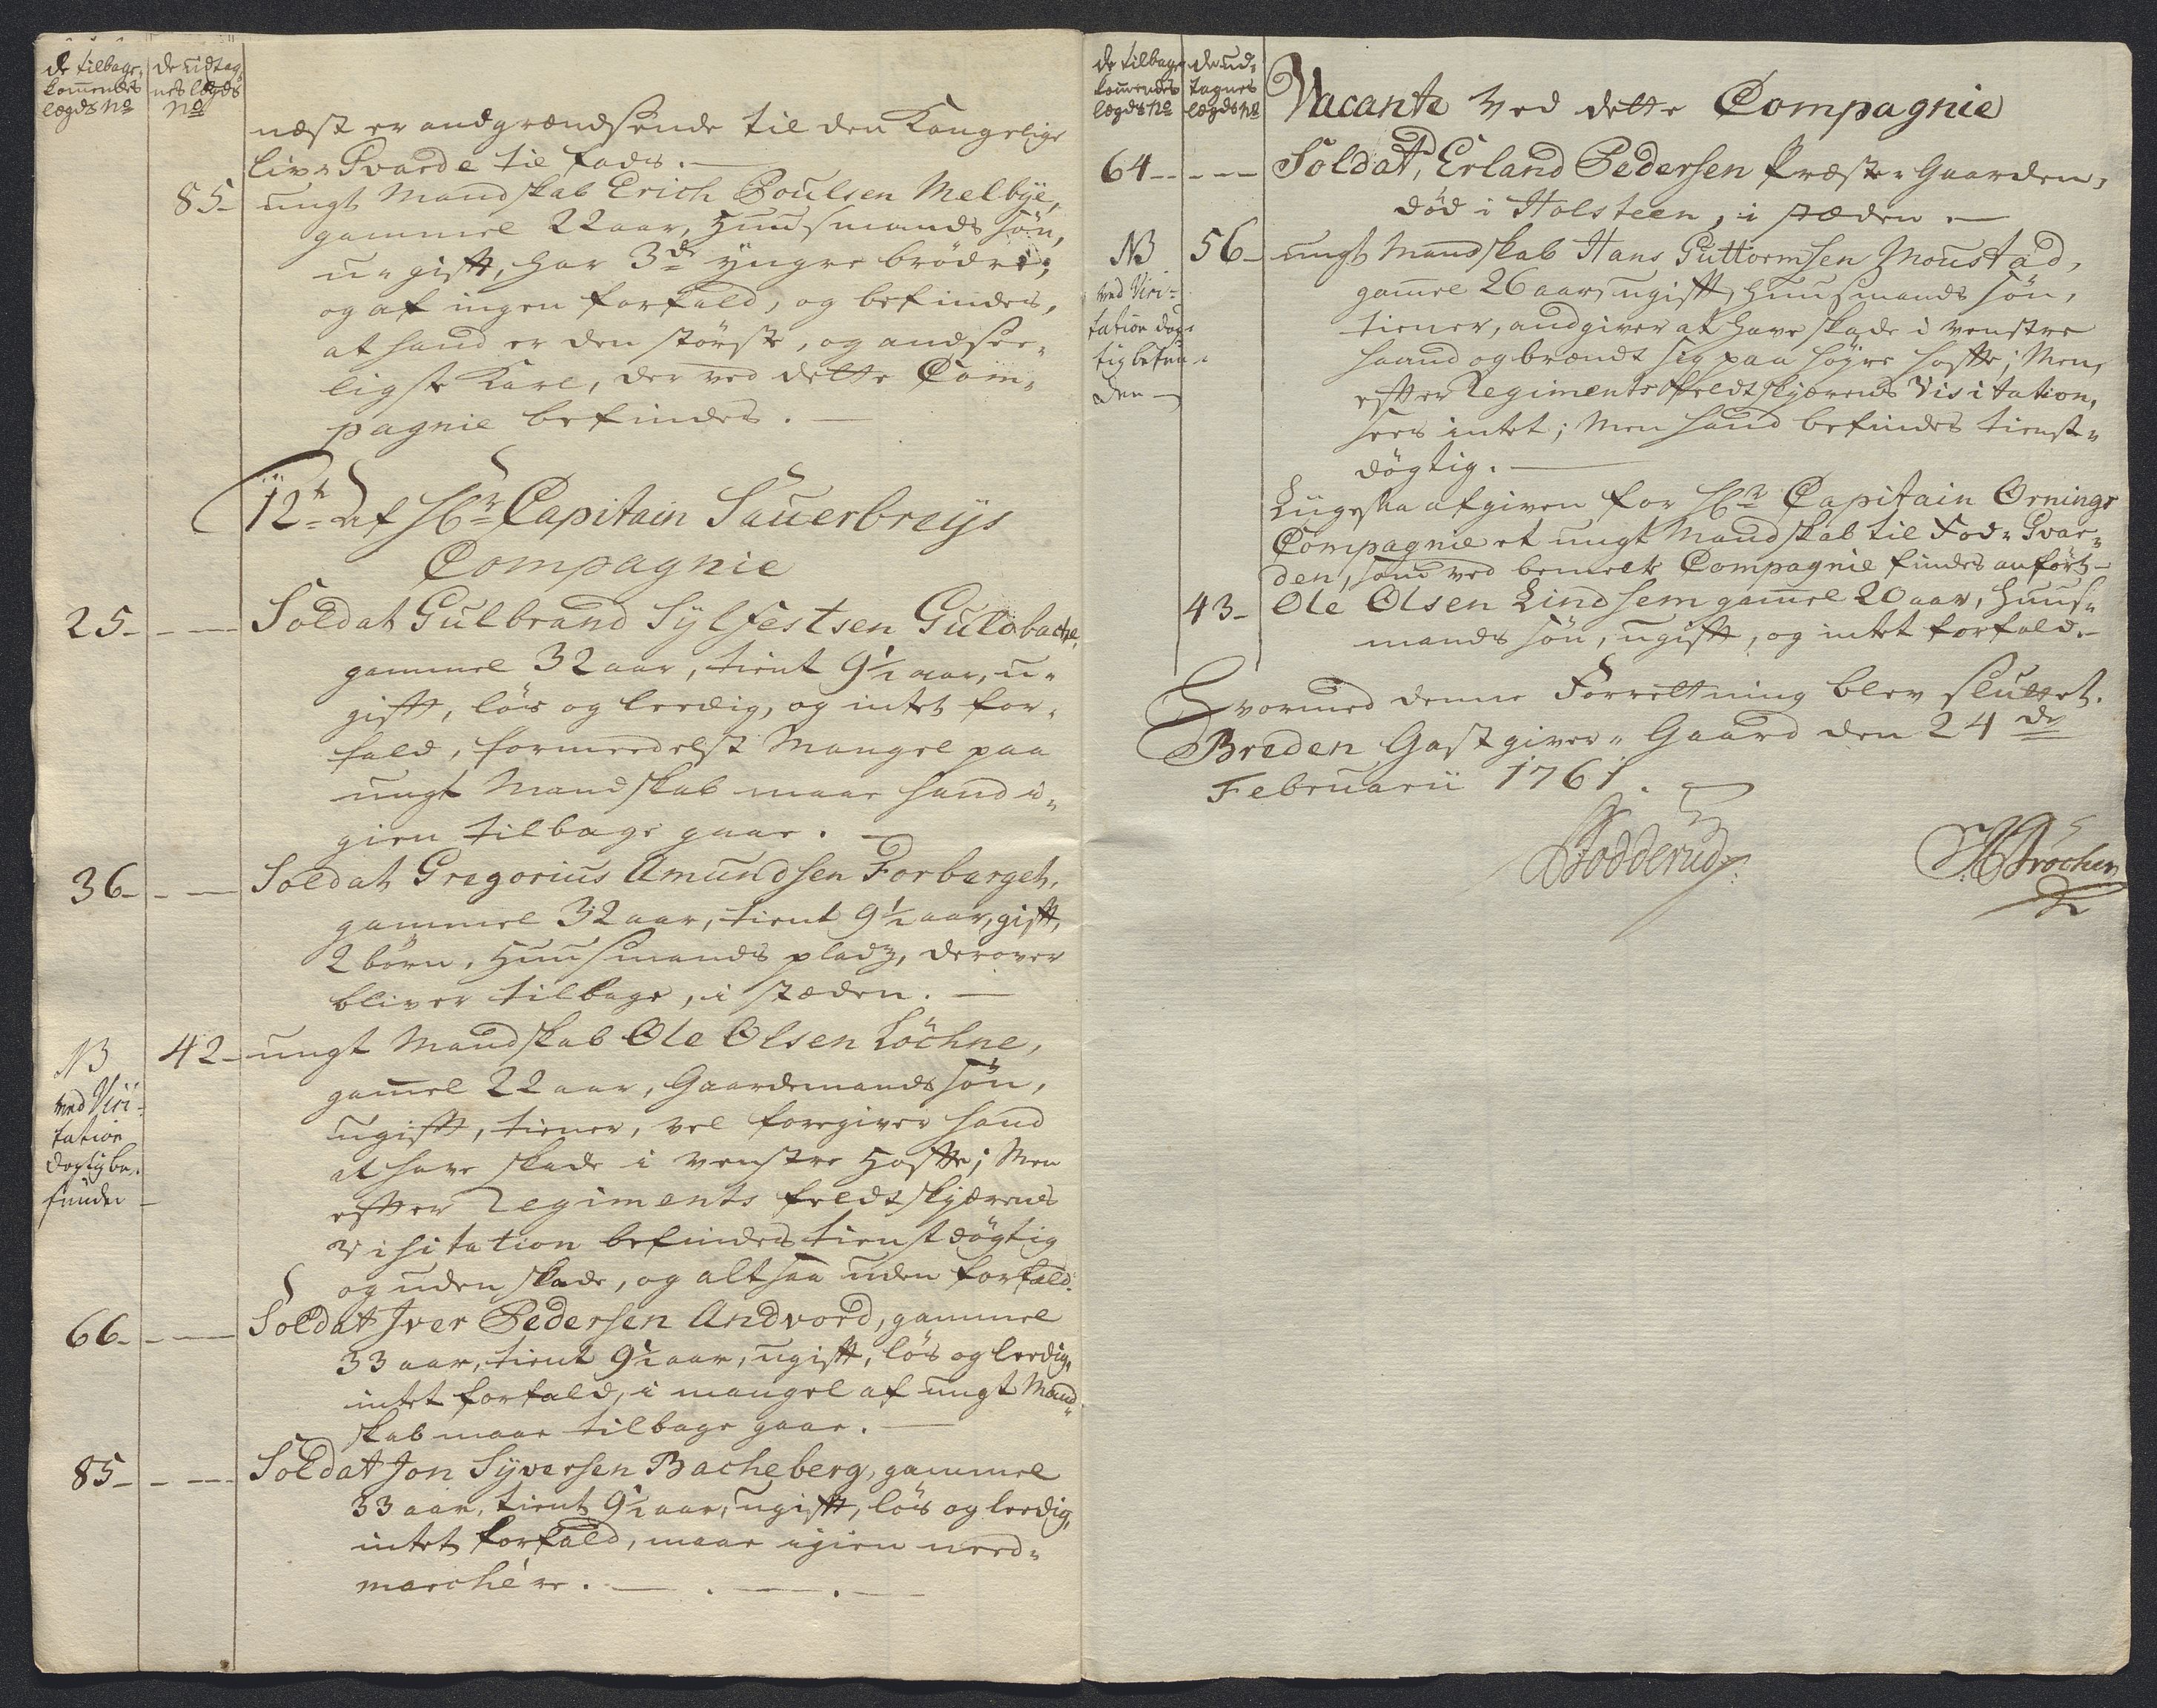 de tilbage,
kom̄endes
lægds No
de udtag,
nes lægds
No
næst er andgrændsende til den Kongelige
liv- Gvarde til fods.
85- ungt Mandskab Erich Poulsen Melbye,
gammel 22 aar, Huusmands søn,
u- gift, har 3de yngre brödre;
og af ingen forfald, og befindes,
at hand er den störste, og andsee-
ligste Karl, der ved dette Com-
pagnie befindes.
12te Af Hr Capitain Sauerbreys
Compagnie
25- Soldat Gulbrand Sylfestsen Guldbache,
gammel 32 aar, tient 9½ aar, u-
gift, lös og leedig, og intet for-
fald, formeedelst Mangel paa
ungt Mandskab maae hand i-
gien tilbage gaae.
36- Soldat Gregorius Amundsen Forberget,
gammel 32 aar, tient 9½ aar, gift,
2 börn, Huusmands pladz, derover
bliver tilbage, i stæden.
NB
ved Visi-
tation
dögtig be-
funden
42- ungt Mandskab Ole Olsen Löchne,
gam̄el 22 aar, Gaardmands søn,
ugift, tiener, vel foregiver hand
at have skade i venstre Hofte; Men
efter Regiments feldtskjærens
Visitation befindes tienstdögtig
og uden skade, og altsaa uden forfald.
66- Soldat Iver Pedersen Andvord, gammel
33 aar, tient 9½ aar, ugift, lös og leedig,
intet forfald, i mangel af ungt Mand-
skab maae tilbage gaae.
85- Soldat Jon Syversen Bacheberg, gammel
33 aar, tient 9½ aar, ugift, lös og leedig,
intet forfald, maae igien need-
marchére.
de tilbage
kom̄endes
lægds No
de ud-
tagnes
lægds No
Vacante ved dette Compagnie
64- Soldat, Erland Pedersen Præste- Gaarden,
död i Holsteen, i stæden
NB
ved Visi-
tation dög-
tig befun-
den
56- ungt Mandskab Hans Guttormsen Moustad,
gam̄el 26 aar, ugift, Huusmands søn,
tiener, andgiver at have skade i venstre
haand og brændt sig paa höyre hofte; Men,
efter Regiments feldtskjærens Visitation,
sees intet; Men hand befindes tienst-
dögtig.
Liigesaa afgiven for Hr Capitain Ornings
Compagnie et ungt Mandskab til Fod- Gvar-
den, som ved bemelte Compagnie findes anfört-
43- Ole Olsen Lindsem gam̄el 20 aar, Huus-
mands søn, ugift, og intet forfald.
Hvormed denne Forrettning blev sluttet.
Breden Gastgiver- Gaard den 24de
Februarii 1761.